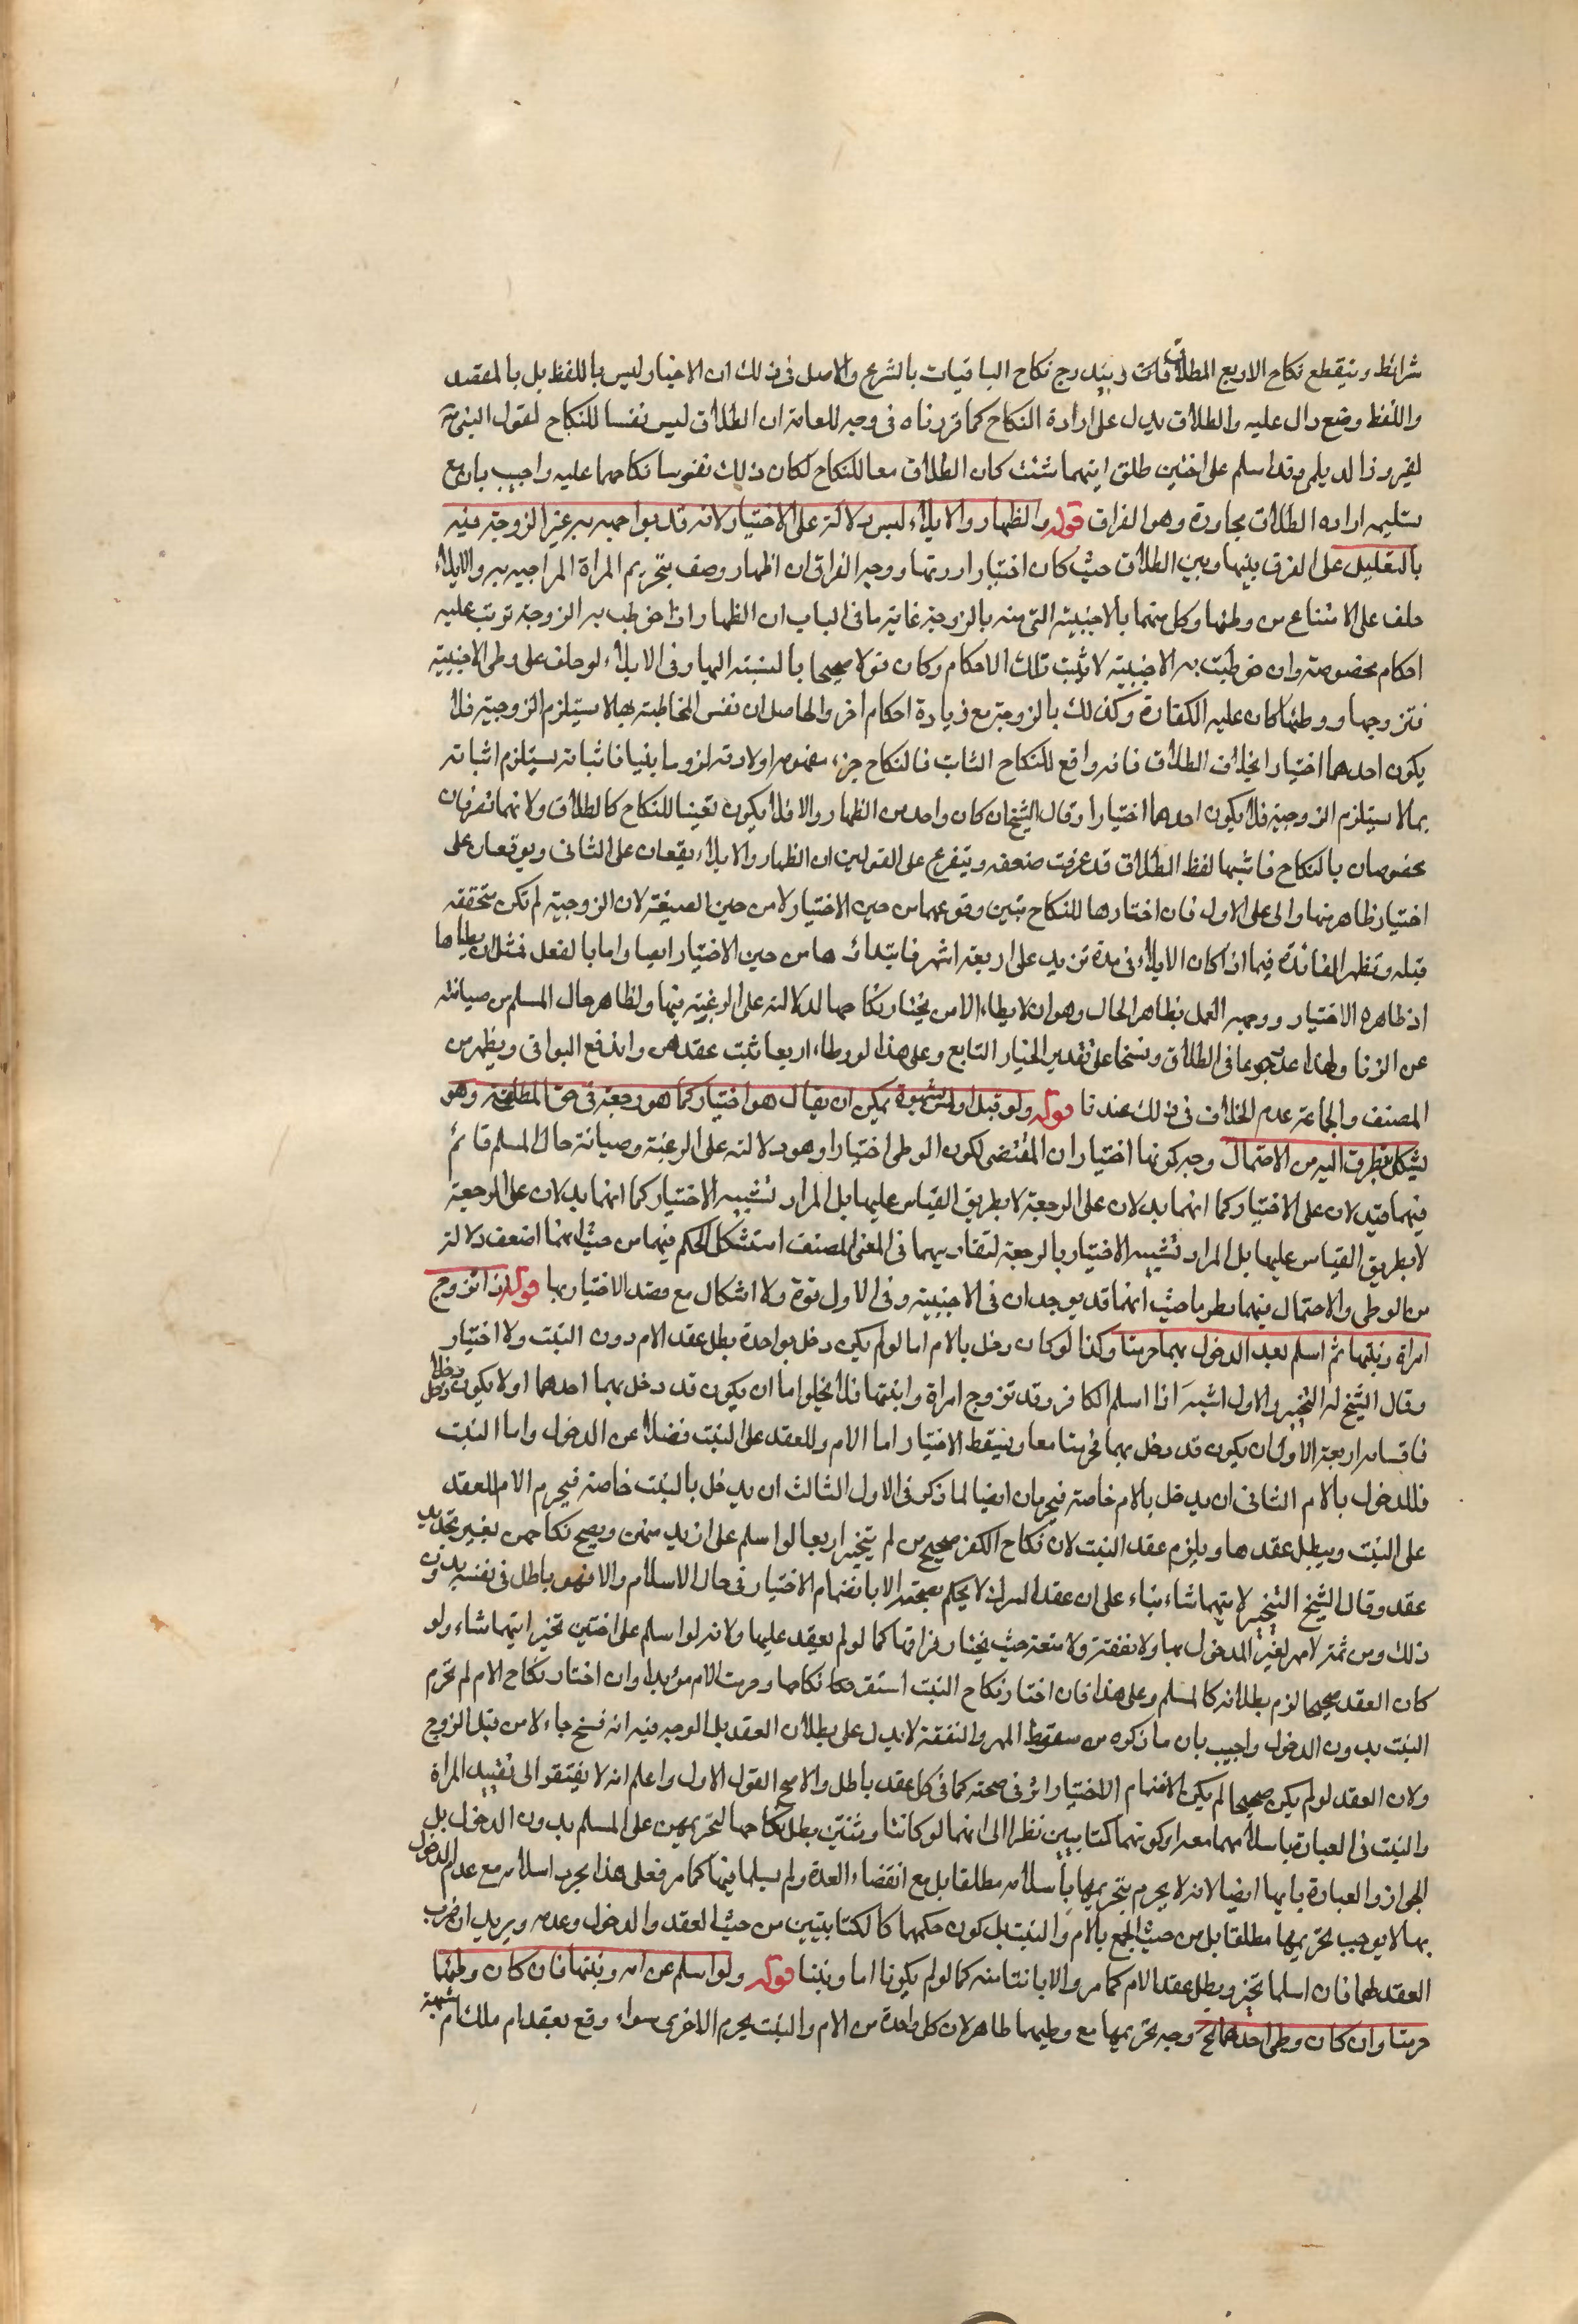 شرائط وينقطع نكاح الاربع المطلقات ويندرج نكاح الباقيات بالشرع والاصل فى ذلك ان الاختيار ليس باللفظ بل بالقصد
واللفظ وضع دال عليه والطلاق يدل على ارادة النكاح كما قررناه فى وجه للعامة ان الطلاق ليس نفسا للنكاح لقول النبى ص
لفيروز الديلمى وقد اسلم على اختين طلق ايتهما شئت كان الطلاق معا للنكاح لكان ذلك تفويسا نكاحهما عليه واجيب بان مع
تسليمه اراده الطلاق مجازه وهو الفراق قوله والظهار والايلاء ليس دلالة على الاختيار لانه قد يواجه به غير الزوجة فيه
بالتعليل على الفرق بينها وبين الطلاق حيث كان اختيارا دونها ووجه الفراق ان الظهار وصف بتحريم المراة المواجهة به والايلاء
حلف على الامتناع من وطئها وكل منهما بالاجنبية التى منه بالزوجة غاية ما فى الباب ان الظهار اذا خوطب به الزوجة ترتب عليه
احكام مخصوصة وان خوطبت به الاجنبية لا تثبت تلك الاحكام وكان قولا صحيحا بالنسبة اليها وفى الايلاء لو حلف على وطى الاجنبية
فتزوجها ووطئها كان عليه الكفارة وكذلك بالزوجة مع زيادة احكام اخر والحاصل ان نفس المخاطبة بها لا يستلزم الزوجية فلا
يكون احدهما اختيارا بخلاف الطلاق فانه رافع للنكاح الثابت فالنكاح جزء مفهومه اولازمه لزوما بينا فاثباته يستلزم اثباته
بما لا يستلزم الزوجية فلا يكون احدهما اختيارا وقال الشيخ ان كان واحد من الظهار والافلا يكون تعيينا للنكاح كالطلاق ولانهما تصرفان
مخصوصان بالنكاح فاشبها لفظ الطلاق قد عرفت ضعفه ويتفرع على القولين ان الظهار والايلاء يقعان على الثانى ويوقعان على
اختيار ظاهر منها والى على الاول فان اختارها للنكاح تبين وقوعهما من حين الاختيار لا من حين الصيغة لان الزوجية لم تكن متحققه
قبله وتظهر الفائدة فيما اذا كان الايلاء فى مدة تزيد على اربعة اشهر فابتداؤها من حين الاختيار ايضا واما بالفعل فمثل ان يطاها
اذ ظاهره الاختيار ووجهه العمل بظاهر الحال وهو ان لا يطاء الا من يختار نكاحها لدلالته على الرغبة فيها ولظاهر حال المسلم من صيانته
عن الزنا ولهذا عد رجوعا فى الطلاق وفسخا على تقدير الخيار التابع وعلى هذا لو وطاء اربعا ثبت عقدهن واندفع البواقى ويظهر من
المصنف والجماعة عدم الخلاف فى ذلك عندنا قوله ولو قبل او لمس بشهوة يمكن ان يقال هو اختيار كما هو رجعة فى حق المطلقة وهو
يشكل بتطرق اليه من الاحتمال وجه كونها اختيارا ان المقتضى لكون الوطى اختيارا وهو دلالته على الرغبة وصيانة حال المسلم قائم
فيهما فيدلان على الاختيار كما انهما يدلان على الرجعة لا بطريق القياس عليها بل المراد تشبيه الاختيار كما انهما يدلان على الرجعة
لا بطريق القياس عليها بل المراد تشبيه الاختيار بالرجعة لتقاربهما فى المعنى المصنف استشكل الحكم فيهما من حيث انهما اضعف دلالة
من الوطى والاحتمال فيهما يطرها حيث انهما قد يوجدان فى الاجنبية وفى الاول قوة ولا اشكال مع قصد الاختيار بها قوله اذا تزوج
امراة وبنتها ثم اسلم بعد الدخول بهما حرمتا وكذا لو كان دخل بالام اما لو لم يكن دخل بواحدة بطل عقد الام دون البنت ولا اختيار
وقال الشيخ له التخيير والاول اشبه اذا اسلم الكافر وقد تزوج امراة وابنتها فلا يخلوا اما ان يكون قد دخل بهما احدهما او لا يكون دخل
فاقسامه اربعة الاول ان يكون قد دخل بهما فحرمتا معا ويسقط الاختيار اما الام وللعقد على البنت فضلا عن الدخول واما البنت
فللدخول بالام الثانى ان يدخل بالام خاصة فيحرمان ايضا لما ذكر فى الاول الثالث ان يدخل بالبنت خاصة فيحرم الام للعقد
على البنت ويبطل عقدها ويلزم عقد البنت لان نكاح الكفر صحيح من لم يتخير اربعا لو اسلم على ازيد منهن ويصح نكاحهن بغير تجديد
عقد وقال الشيخ التخيير لايتهما شاء بناء على ان عقد الشرك لا يحكم بصحته الا بانضمام الاختيار فى حال الاسلام والا فهو باطل فى نفسه بدون
ذلك ومن ثمة لامهر لغير المدخول بها ولا نفقة ولا متعة حيث يختار فراقها كما لو لم يعقد عليها ولانه لو اسلم على اختين تخير ايتهما شاء ولو
كان العقد صحيحا لزم بطلانه كالمسلم وعلى هذا فان اختار نكاح البنت استقر نكاحها وحرمت الام مؤبدا وان اختار نكاح الام لم تحرم
البنت بدون الدخول واجيب بان ما ذكره من سقوط المهر والنفقة لا يدل على بطلان العقد بل الوجه فيه انه فسخ جاء لا من قبل الزوج
ولان العقد لو لم يكن صحيحا لم يكن لانضمام الاختيار اثر فى صحته كما فى كل عقد باطل والاصح القول الاول واعلم انه لا يفتقر الى تقييد المراة
والبنت فى العبارة باسلامهما معه او كونهما كتابيين نظرا الى انهما لو كانتا وثنيتين بطل نكاحهما لتحريمهن على المسلم بدون الدخول بل
الجواز والعبارة بابها ايضا لانه لا يحرم بتحريمها باسلامه مطلقا بل مع انقضاء العدة ولم يسلما فيها كما مر فعلى هذا بجرد اسلامه مع عدم الدخول
بها لا يوجب تحريمها مطلقا بل من حيث الجمع بالام والبنت بل كون حكمهما كالكتابيتين من حيث العقد والدخول وعدمه ويريد ان ضرب
العقد لهما فان اسلما تخير وبطل عقد الام كما مر والا بانتا منه كما لو لم يكونا اما وبنتا قوله ولو اسلم عن امه وبنتها فان كان وطئها
حرمتا وان كان وطى احدهما الخ وجه تحريمها مع وطيهما ظاهر لان كل واحدة من الام والبنت يحرم الاخرى سواء وقع بعقد ام ملك ام شبهة